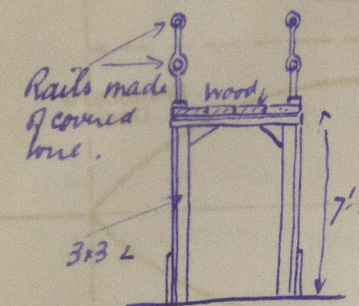 Rails made
of covered
wire.
wood
3x3 L
7'